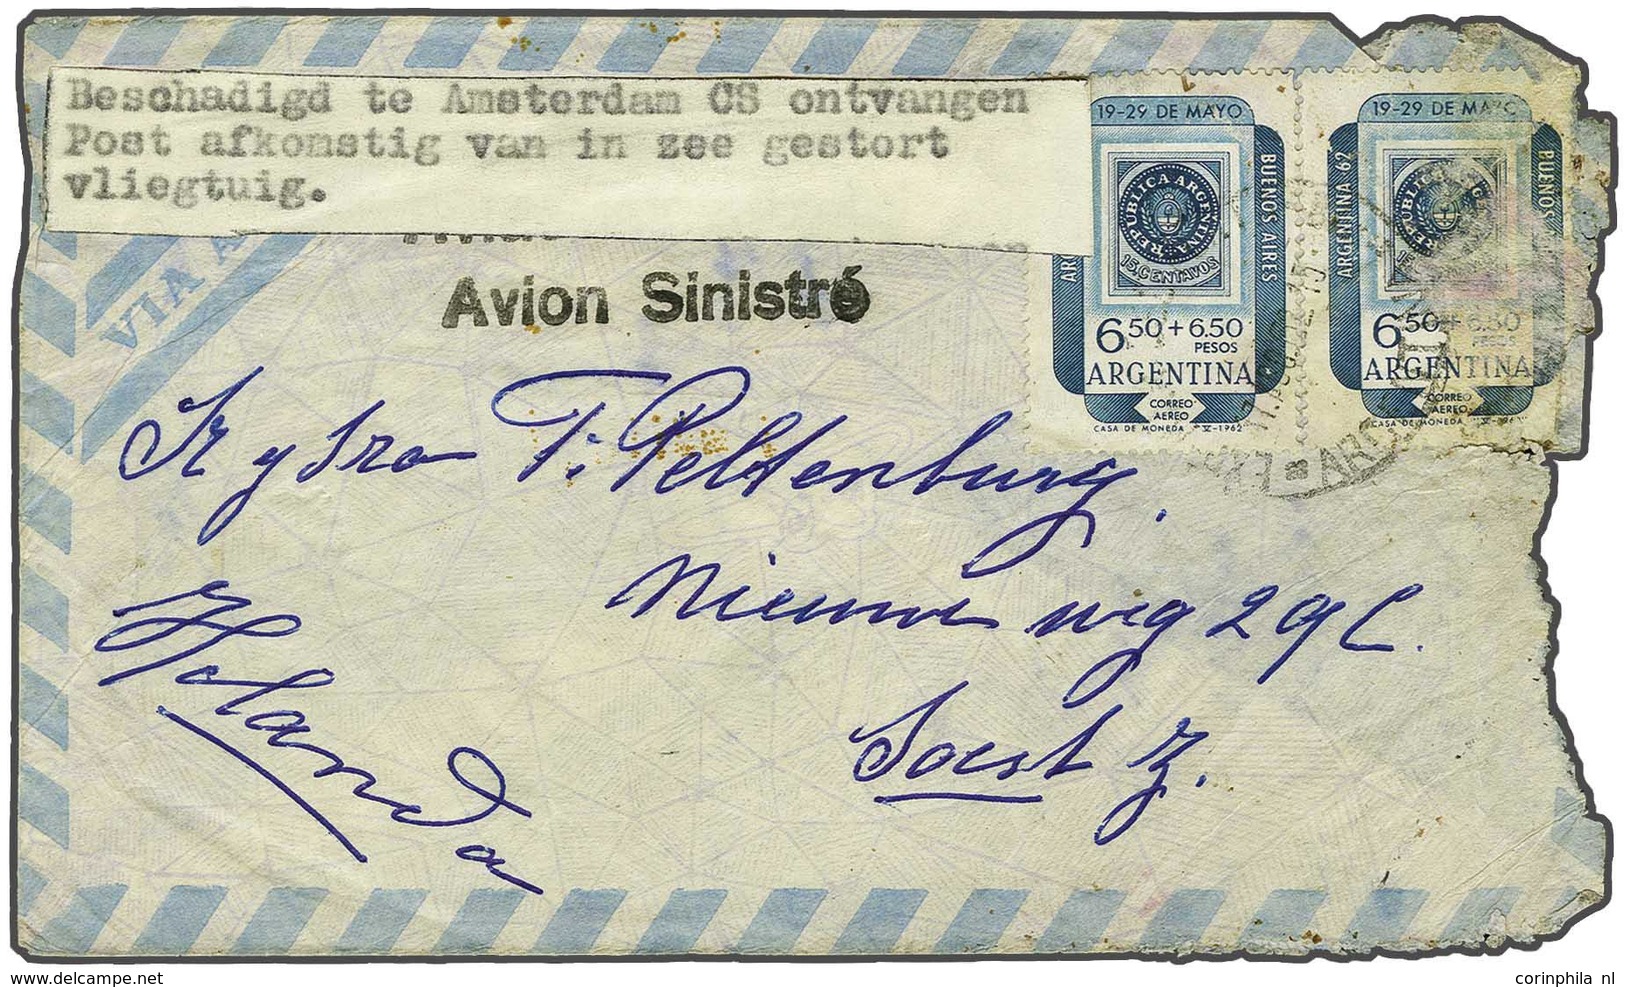 Beschadigd te Amsterdam CS ontvangen
Post afkomstig van in zee gestort
vliegtuig.
VIA A
Avion Sinistré
19-29 DE MAYO
BUENOS AIRES
REPUBLICA ARGENTINA
15. CENTAVOS
6 50 + 6.50
PESOS
ARGENTINA
CORREO
AEREO
CASA DE MONEDA V-1962
19-29 DE MAYO
ARGENTINA 62
BUENOS
6 50 + 6.50
PESOS
ARGENTINA
CORREO
AEREO
CASA DE MONEDA V-196
T. Peltenburg.
Nieuwe weg 29 C.
Soest Z.
Holanda
corinphila nl